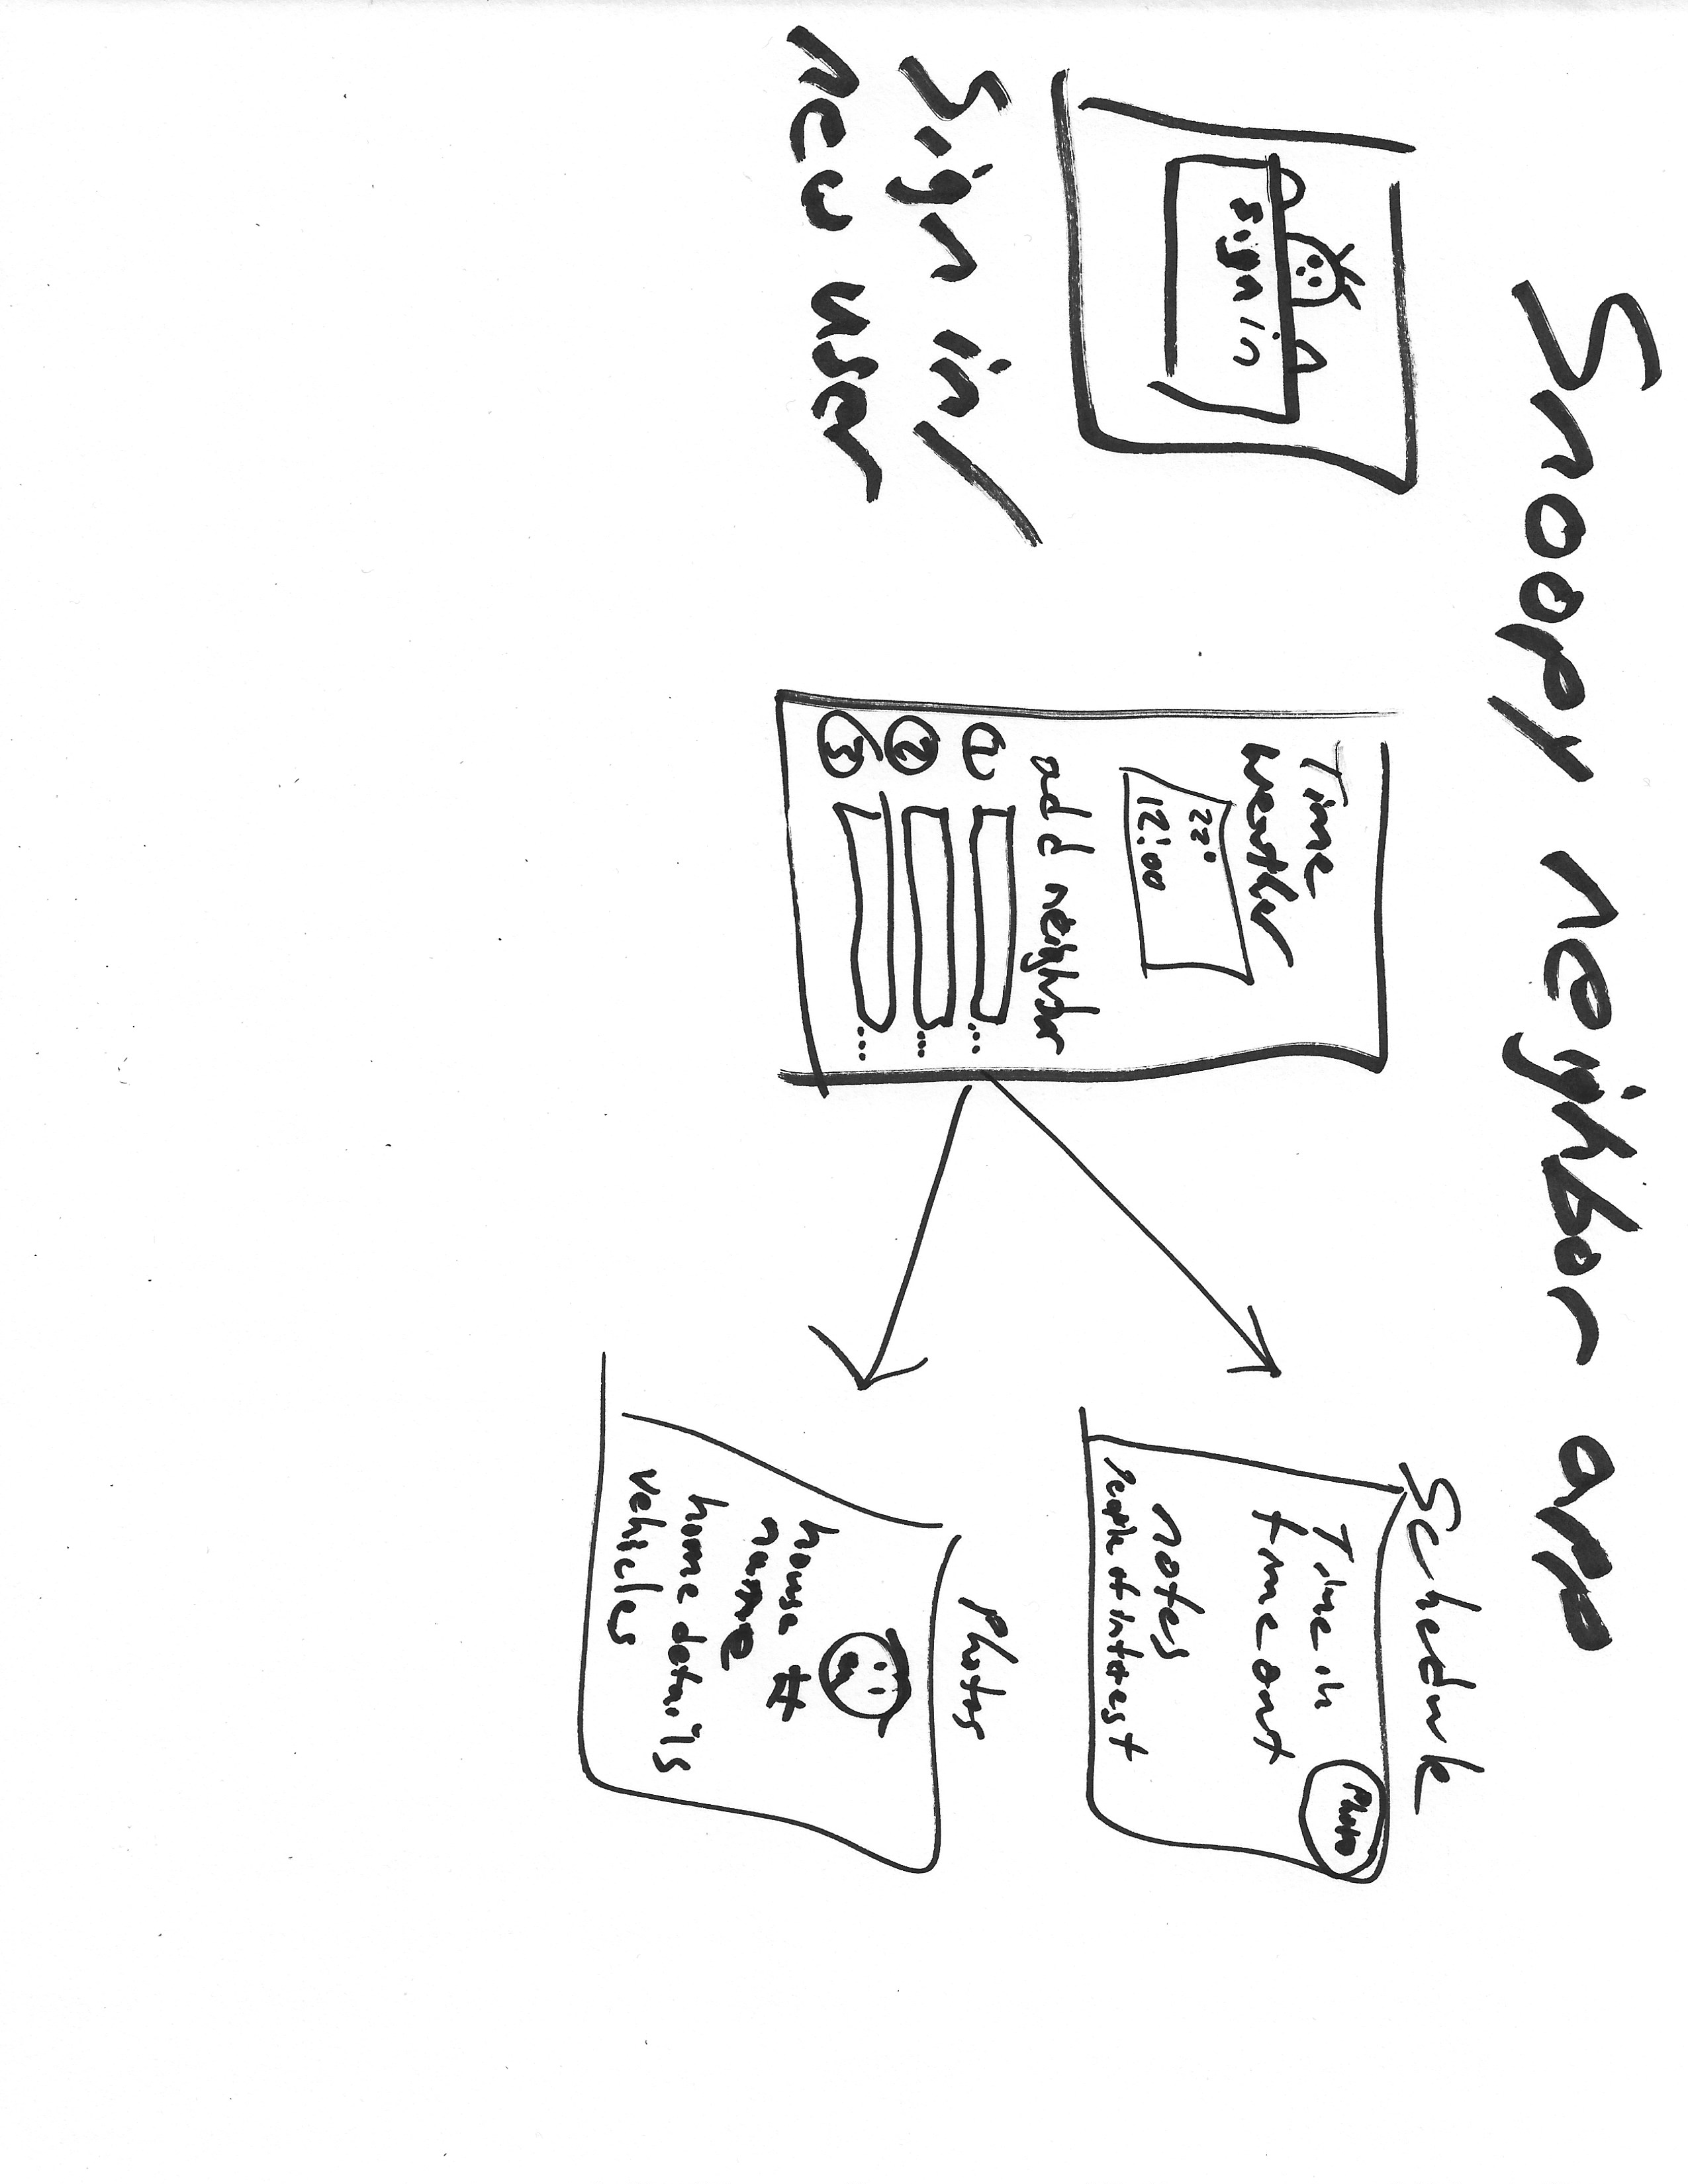 Snoopy neighbor app
Sign in
Sign in/
new user
Time
weather
22°
12:00
add neighbor
1
2
3
Schedule
Photo
Time in
time out
notes
people of interest
Photos
house #
name
home details
vehicles